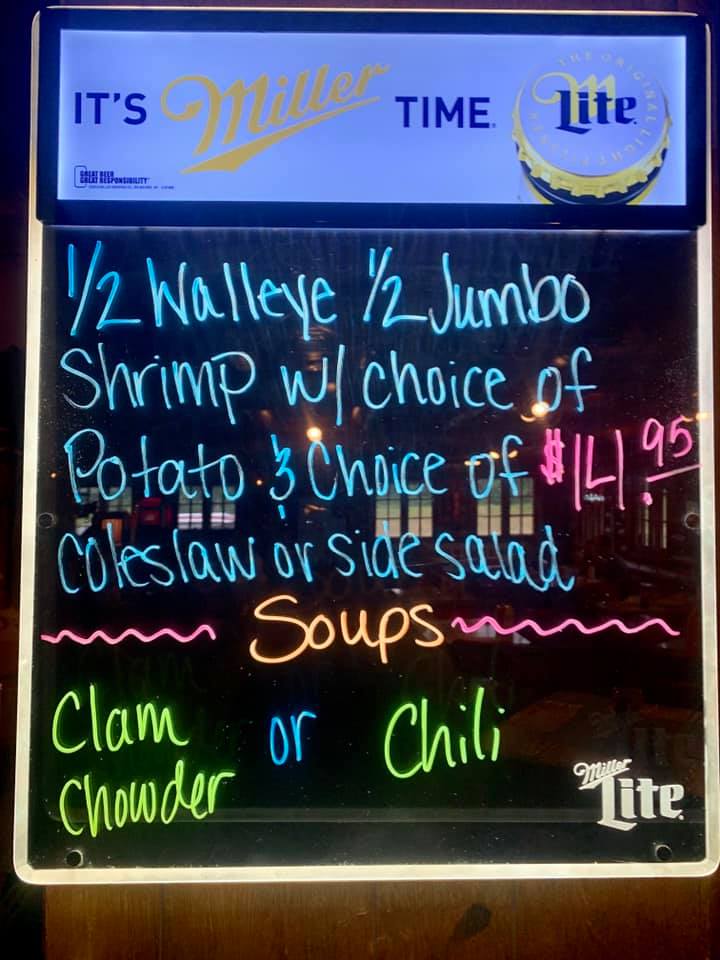 IT'S Miller TIME.
THE ORIGINAL
Lite
GREAT BEER
GREAT RESPONSIBILITY
1/2 Walleye 1/2 Jumbo
Shrimp w/ choice of
Potato & Choice of $14.95
Coleslaw or side salad
Soups
Clam or Chili
Chowder
Miller
Lite